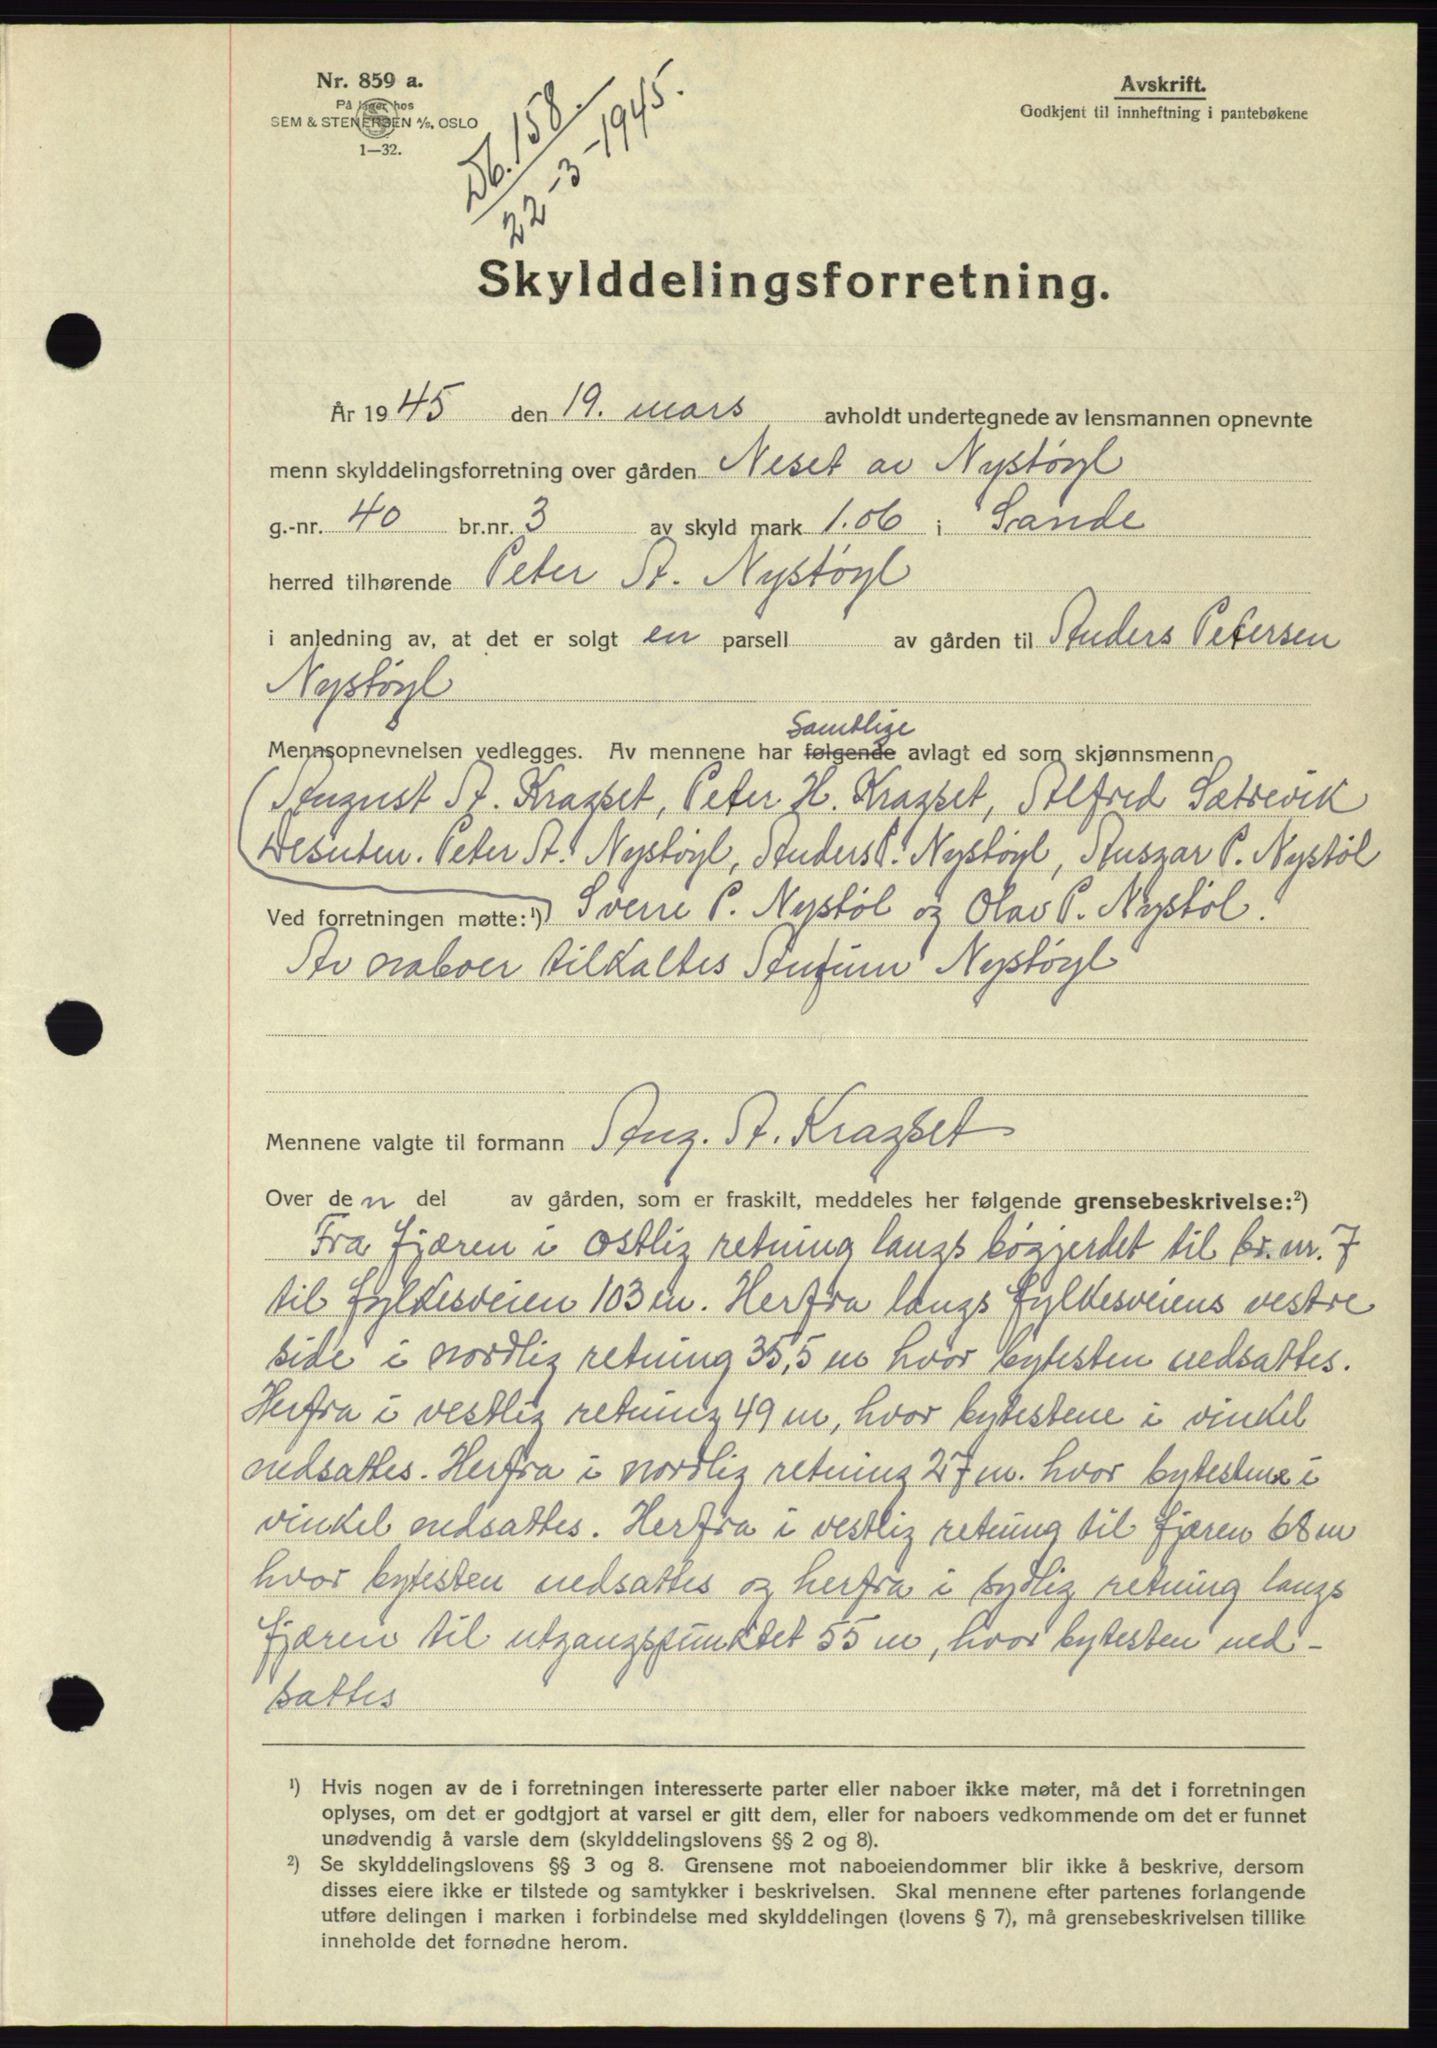 Nr. 859 a.
På lager hos
SEM & STENERSEN A/S, OSLO
1—32.
Db. 158
22-3-1945.
Avskrift.
Godkjent til innheftning i pantebøkene
Skylddelingsforretning.
År 1945 den 19. mars avholdt undertegnede av lensmannen opnevnte
menn skylddelingsforretning over gården Neset av Nystøyl
g.-nr. 40 br.nr. 3 av skyld mark 1.06 i Sande
herred tilhørende Peter A. Nystøyl
i anledning av, at det er solgt en parsell av gården til Anders Petersen
Nystøyl
Samtlige
Mennsopnevnelsen vedlegges. Av mennene har følgende avlagt ed som skjønnsmenn
August A. Kragset, Peter H. Kragset, Alfred Sætrevik
Desuten. Peter A. Nystøyl, Anders P. Nystøyl, Ansgar P. Nystøl
Ved forretningen møtte:¹) Sverre P. Nystøl og Olav P. Nystøl.
Av naboer tilkaltes Antum Nystøyl
Mennene valgte til formann Aug. A. Kragset
Over den del av gården, som er fraskilt, meddeles her følgende grensebeskrivelse:²)
Fra fjæren i østlig retning langs bøgjerdet til br. nr. 7
til fylkesveien 103 m. Herfra langs fylkesveiens vestre
side i nordlig retning 35,5 m hvor bytesten nedsattes.
Herfra i vestlig retning 49 m, hvor bytestene i vinkel
nedsattes. Herfra i nordlig retning 27 m. hvor bytestene i
vinkel nedsattes. Herfra i vestlig retning til fjæren 68 m
hvor bytesten nedsattes og herfra i sydlig retning langs
fjæren til utgangspunktet 55 m, hvor bytesten ned-
sattes
¹) Hvis nogen av de i forretningen interesserte parter eller naboer ikke møter, må det i forretningen
oplyses, om det er godtgjort at varsel er gitt dem, eller for naboers vedkommende om det er funnet
unødvendig å varsle dem (skylddelingslovens §§ 2 og 8).
²) Se skylddelingslovens §§ 3 og 8. Grensene mot naboeiendommer blir ikke å beskrive, dersom
disses eiere ikke er tilstede og samtykker i beskrivelsen. Skal mennene efter partenes forlangende
utføre delingen i marken i forbindelse med skylddelingen (lovens § 7), må grensebeskrivelsen tillike
inneholde det fornødne herom.